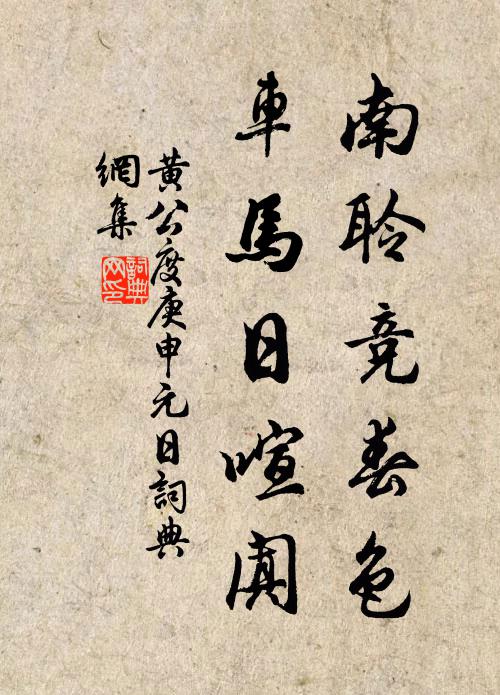 南聆竞春色
車馬日喧闐
黄公度庚申元日詞典
網集
詞典網印